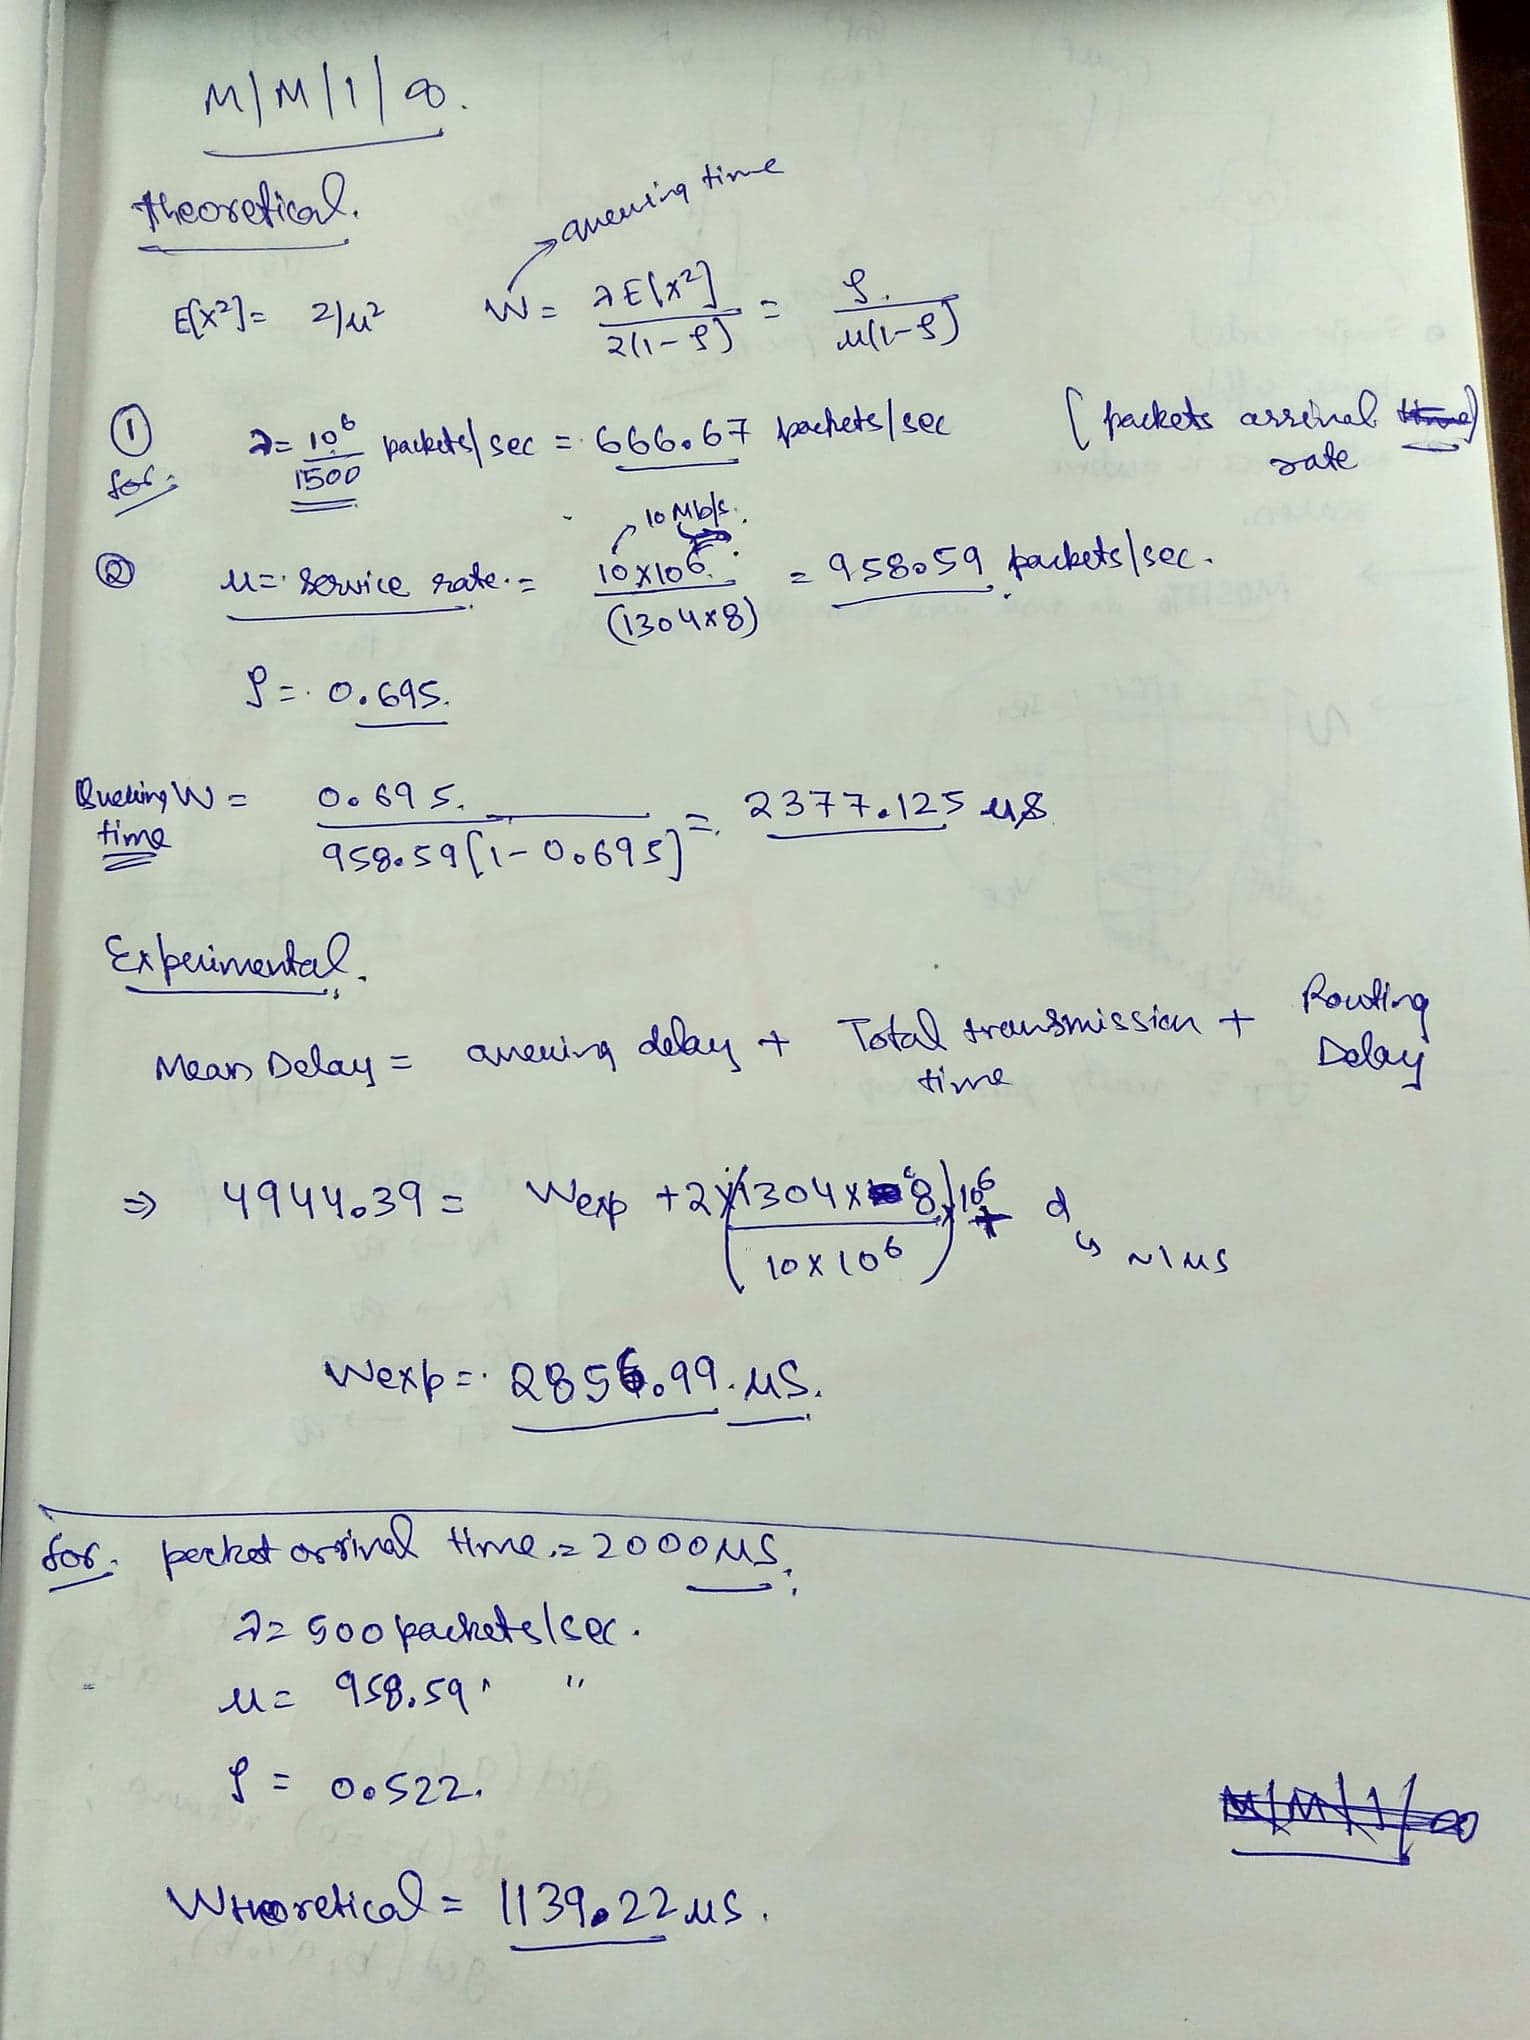 M/M/1/∞.
Theoretical.
queuing time
E[x²] = 2/μ² W = λE[x²] / 2(1-ρ) = ρ / μ(1-ρ)
① for: λ = 10⁶/1500 packets/sec = 666.67 packets/sec (packets arrival rate)
10 Mb/s.
② μ = service rate = 10×10⁶ / (1304×8) = 958.59 packets/sec.
ρ = 0.695.
Queuing time W = 0.695 / 958.59[1-0.695] = 2377.125 μs
Experimental.
Mean Delay = queuing delay + Total transmission time + Routing Delay
⇒ 4944.39 = Wexp + 2×(1304×8 / 10×10⁶)×10⁶ + d
↳ ~1μs
Wexp = 2856.99 μs.
for packet arrival time = 2000μs.
λ = 500 packets/sec.
μ = 958.59 "
ρ = 0.522.
Wtheoretical = 1139.22 μs.
M/M/1/∞